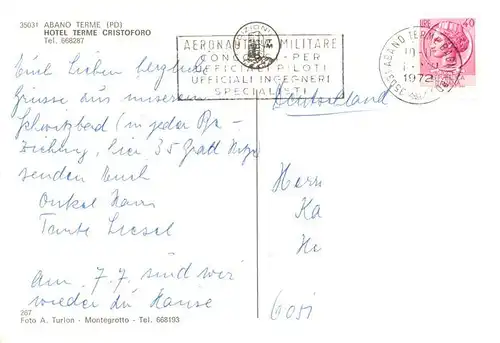 35031 ABANO TERME (PD)
HOTEL TERME CRISTOFORO
Tel. 668287
AERONAUTICA MILITARE
CONCORSI PER
UFFICIALI PILOTI
UFFICIALI INGEGNERI
SPECIALISTI
35031 ABANO TERME
1972
LIRE 40
Deutschland
Euch Lieben herzliche
Grüsse aus unserem
Schwitzbad (in jeder Be-
ziehung, hier 35 Grad Hitze)
senden Euch
Onkel Hans
Tante Liesel
Am 7.7. sind wir
wieder zu Hause
Herrn
Ka
He
6051
267
Foto A. Turlon - Montegrotto - Tel. 668193